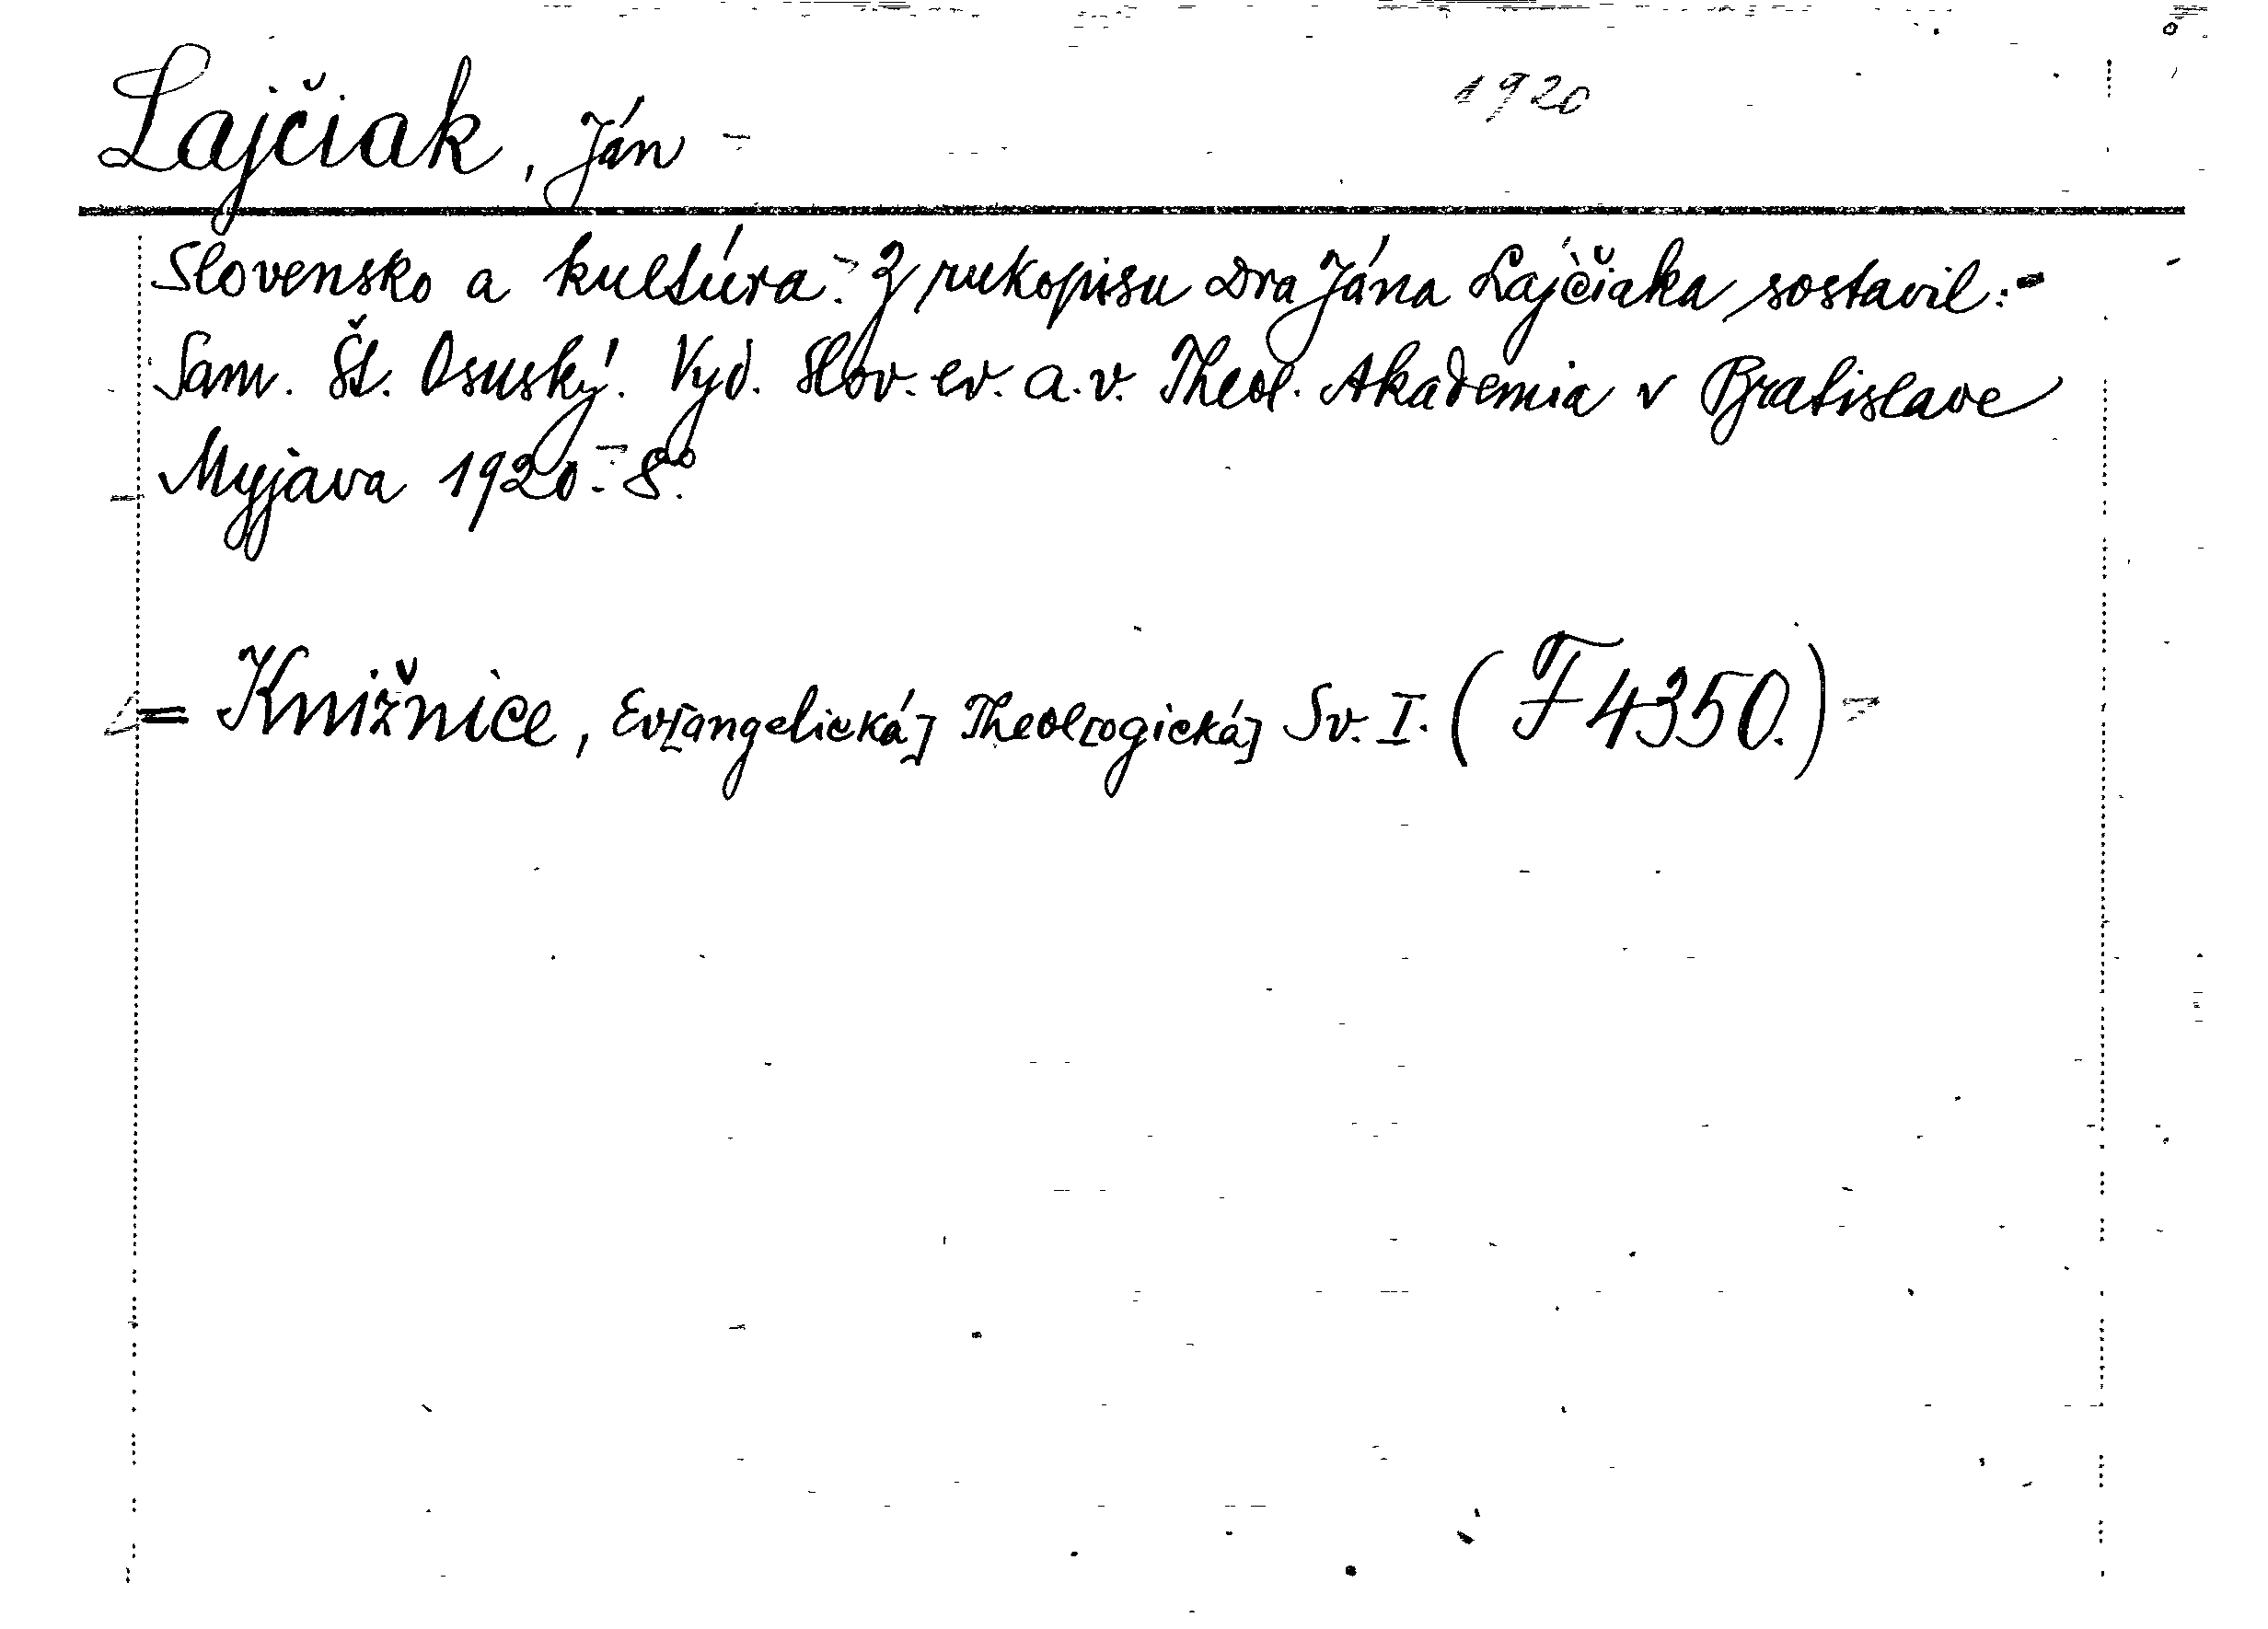 1920
Lajčiak, Ján -
Slovensko a kultúra. - Z rukopisu Dra Jána Lajčiaka sostavil: -
Sam. Št. Osuský. Vyd. Slov. ev. a. v. Theol. Akademia v Bratislave
Myjava 1920. - 8°.
= Knižnice, Ev[angelická] Theol[ogická] Sv. I. (F 4350.) =